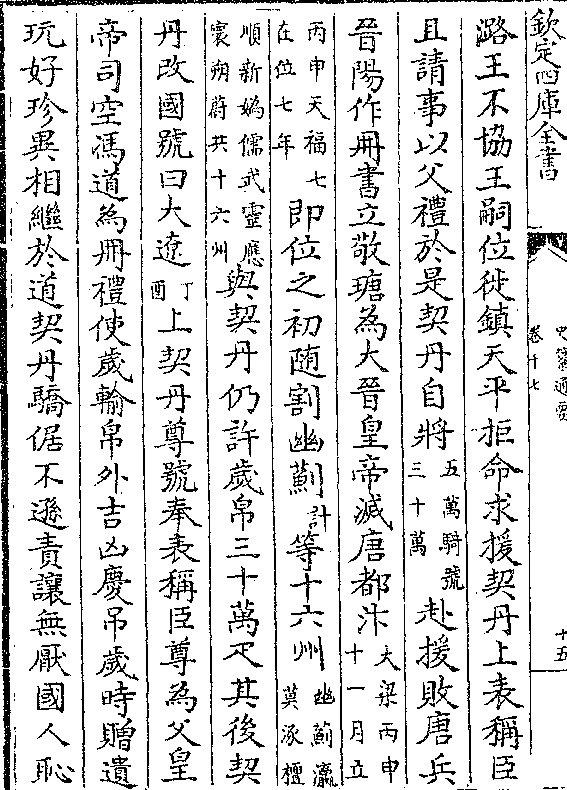 欽定四庫全書
卷十七
十五
潞王不協王嗣位徙鎮天平拒命求援契丹上表稱臣
且請事以父禮於是契丹自將五萬騎號三十萬赴援敗唐兵
晉陽作冊書立敬瑭為大晉皇帝滅唐都汴大梁丙申十一月立
丙申天福七在位七年即位之初随割幽薊計等十六州幽薊瀛莫涿檀
順新媯儒武靈應寰朔蔚共十六州與契丹仍許歲帛三十萬疋其後契
丹改國號曰大遼丁酉上契丹尊號奉表稱臣尊為父皇
帝司空馮道為冊禮使歲輸帛外吉凶慶吊歲時贈遺
玩好珍異相繼於道契丹驕倨不遜責讓無厭國人恥